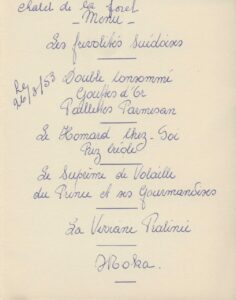 Chalet de la forêt
- Menu -
Les frivolités Suédoises
Le 26/8/53
Double Consommé
Gouttes d'Or
Paillettes Parmesan
Le Homard Chez-Soi
Riz Créole
Le Suprême de Volaille
du Prince et ses Gourmandises
La
Moka.